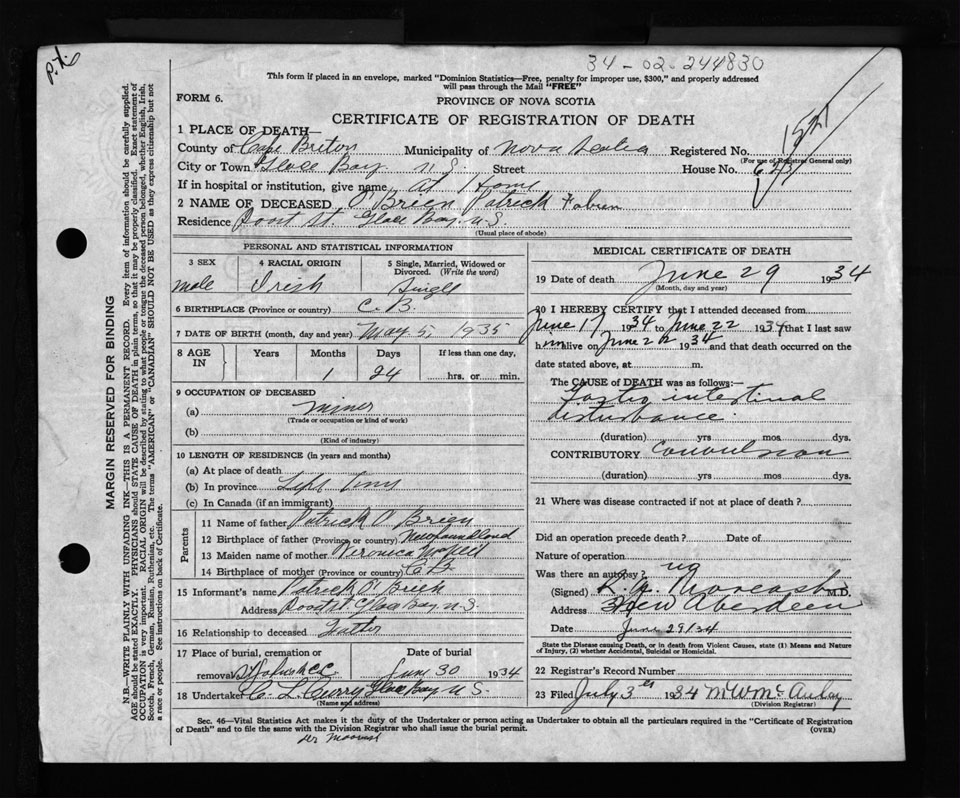 34-02-244830
P.X.
This form if placed in an envelope, marked "Dominion Statistics—Free, penalty for improper use, $300," and properly addressed
will pass through the Mail "FREE"
FORM 6.
PROVINCE OF NOVA SCOTIA
CERTIFICATE OF REGISTRATION OF DEATH
1 PLACE OF DEATH—
County of Cape Breton Municipality of Nova Scotia Registered No.
(For use of Registrar General only)
City or Town Glace Bay N S Street House No.
If in hospital or institution, give name At Home
2 NAME OF DECEASED O'Brien Patrick Fabien
Residence Glace Bay N.S
(Usual place of abode)
PERSONAL AND STATISTICAL INFORMATION
3 SEX 4 RACIAL ORIGIN 5 Single, Married, Widowed or
Divorced. (Write the word)
male Irish Single
6 BIRTHPLACE (Province or country) C.B.
7 DATE OF BIRTH (month, day and year) May 5, 1935
8 AGE IN Years Months Days If less than one day,
1 24 hrs. or min.
9 OCCUPATION OF DECEASED
(a) miner
(Trade or occupation or kind of work)
(b)
(Kind of industry)
10 LENGTH OF RESIDENCE (in years and months)
(a) At place of death
(b) In province Life Time
(c) In Canada (if an immigrant)
Parents
11 Name of father Patrick O'Brien
12 Birthplace of father (Province or country) Newfoundland
13 Maiden name of mother Veronica McNeil
14 Birthplace of mother (Province or country) C B.
15 Informant's name Patrick O'Brien
Address Glace Bay N.S
16 Relationship to deceased Father
17 Place of burial, cremation or Date of burial
removal June 30 1934
18 Undertaker C L Curry Glace Bay N S.
(Name and address)
MEDICAL CERTIFICATE OF DEATH
19 Date of death June 29 1934
(Month, day and year)
20 I HEREBY CERTIFY that I attended deceased from
June 17 1934 to June 22 1934 that I last saw
him alive on June 22 1934 and that death occurred on the
date stated above, at m.
The CAUSE of DEATH was as follows:—
Gastro intestinal
disturbance.
(duration) yrs mos dys.
CONTRIBUTORY Convulsion
(duration) yrs. mos. dys.
21 Where was disease contracted if not at place of death?
Did an operation precede death? Date of
Nature of operation
Was there an autopsy? no
(Signed) M.D.
Address New Aberdeen
Date June 29/34
State the Disease causing Death, or in death from Violent Causes, state (1) Means and Nature
of Injury, (2) whether Accidental, Suicidal or Homicidal.
22 Registrar's Record Number
23 Filed July 3rd 1934 M W McAulay
(Division Registrar)
Sec. 46—Vital Statistics Act makes it the duty of the Undertaker or person acting as Undertaker to obtain all the particulars required in the "Certificate of Registration
of Death" and to file the same with the Division Registrar who shall issue the burial permit.
(OVER)
MARGIN RESERVED FOR BINDING
N.B.—WRITE PLAINLY WITH UNFADING INK—THIS IS A PERMANENT RECORD. Every item of information should be carefully supplied.
AGE should be stated EXACTLY. PHYSICIANS should STATE CAUSE OF DEATH in plain terms, so that it may be properly classified. Exact statement of
OCCUPATION is very important. RACIAL ORIGIN will be described by stating to what people or tongue the deceased person belonged, whether English, Irish,
Scotch, French, German, Russian, Ruthenian, etc. The terms "AMERICAN" or "CANADIAN" SHOULD NOT BE USED as they express citizenship but not
a race or people. See instructions on back of Certificate.